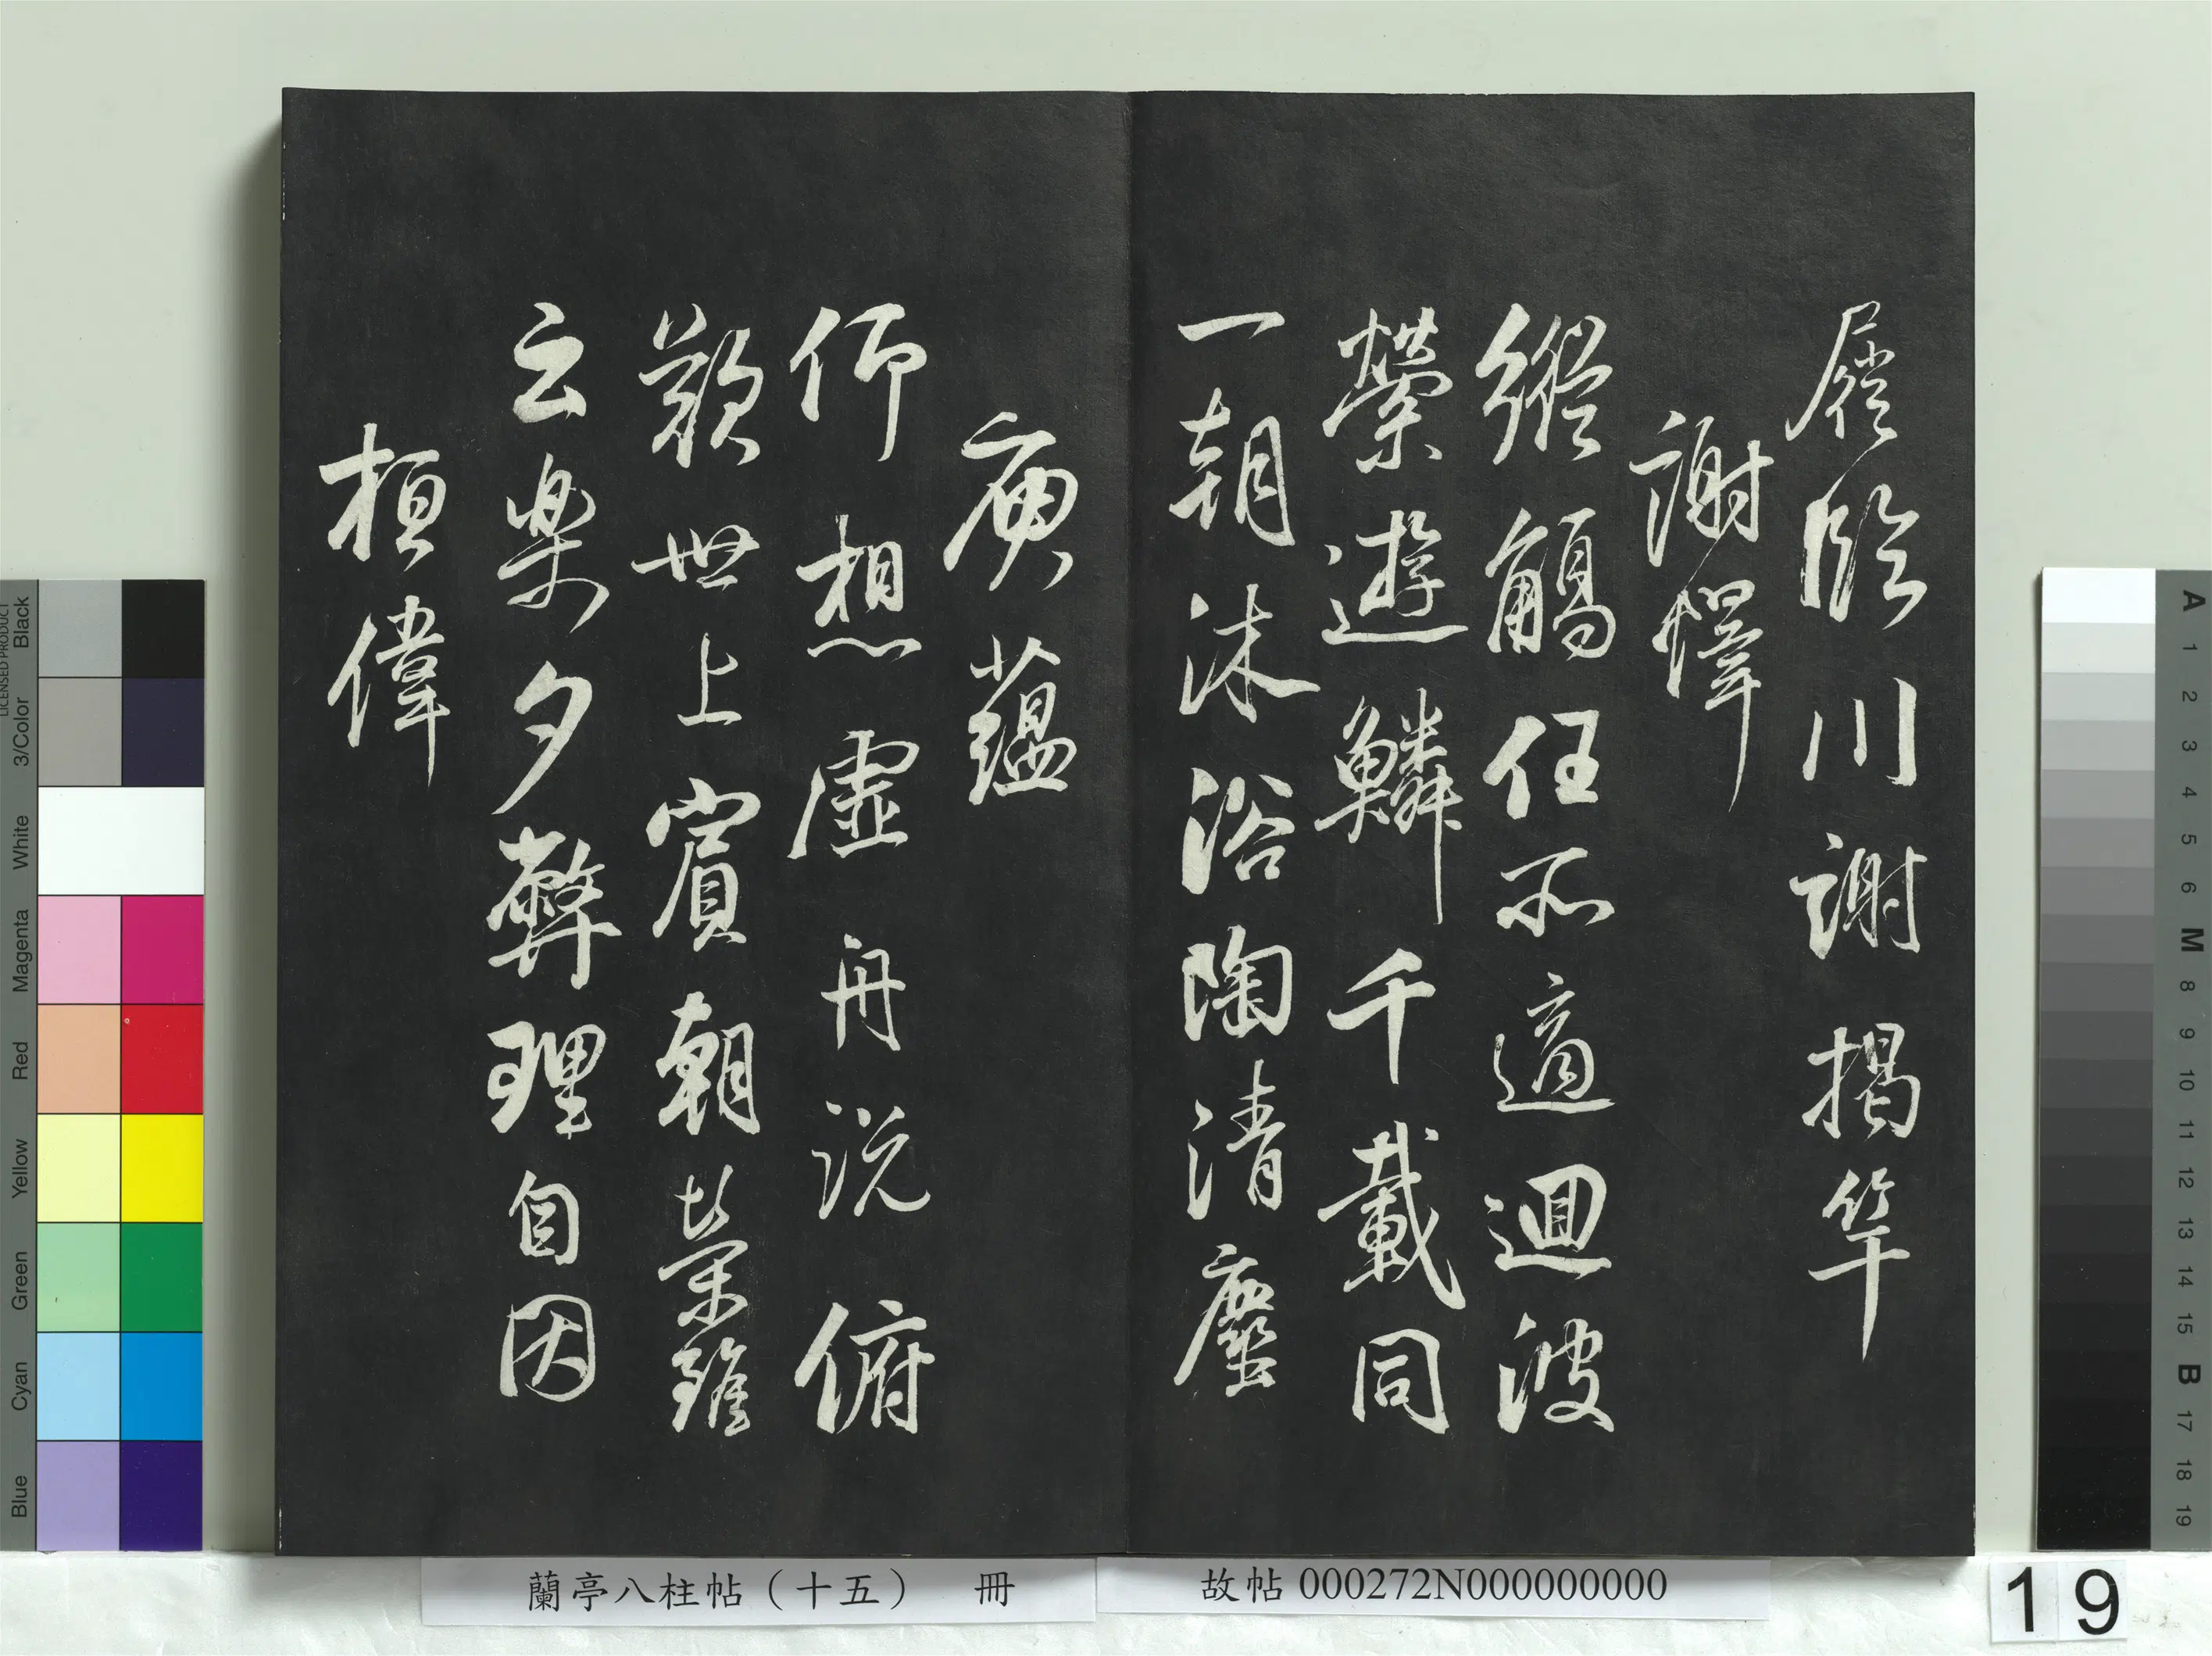 屣臨川謝揭竿
謝懌
縱觴任所適迴波
縈遊鱗千載同
一朝沐浴陶清塵
庾蘊
仰想虛舟說俯
歎世上賓朝榮雖
云樂夕弊理自因
桓偉
蘭亭八柱帖(十五) 冊
故帖 000272N000000000
19
LICENSED PRODUCT
Black
3/Color
White
Magenta
Red
Yellow
Green
Cyan
Blue
A
1
2
3
4
5
6
M
8
9
10
11
12
13
14
15
B
17
18
19